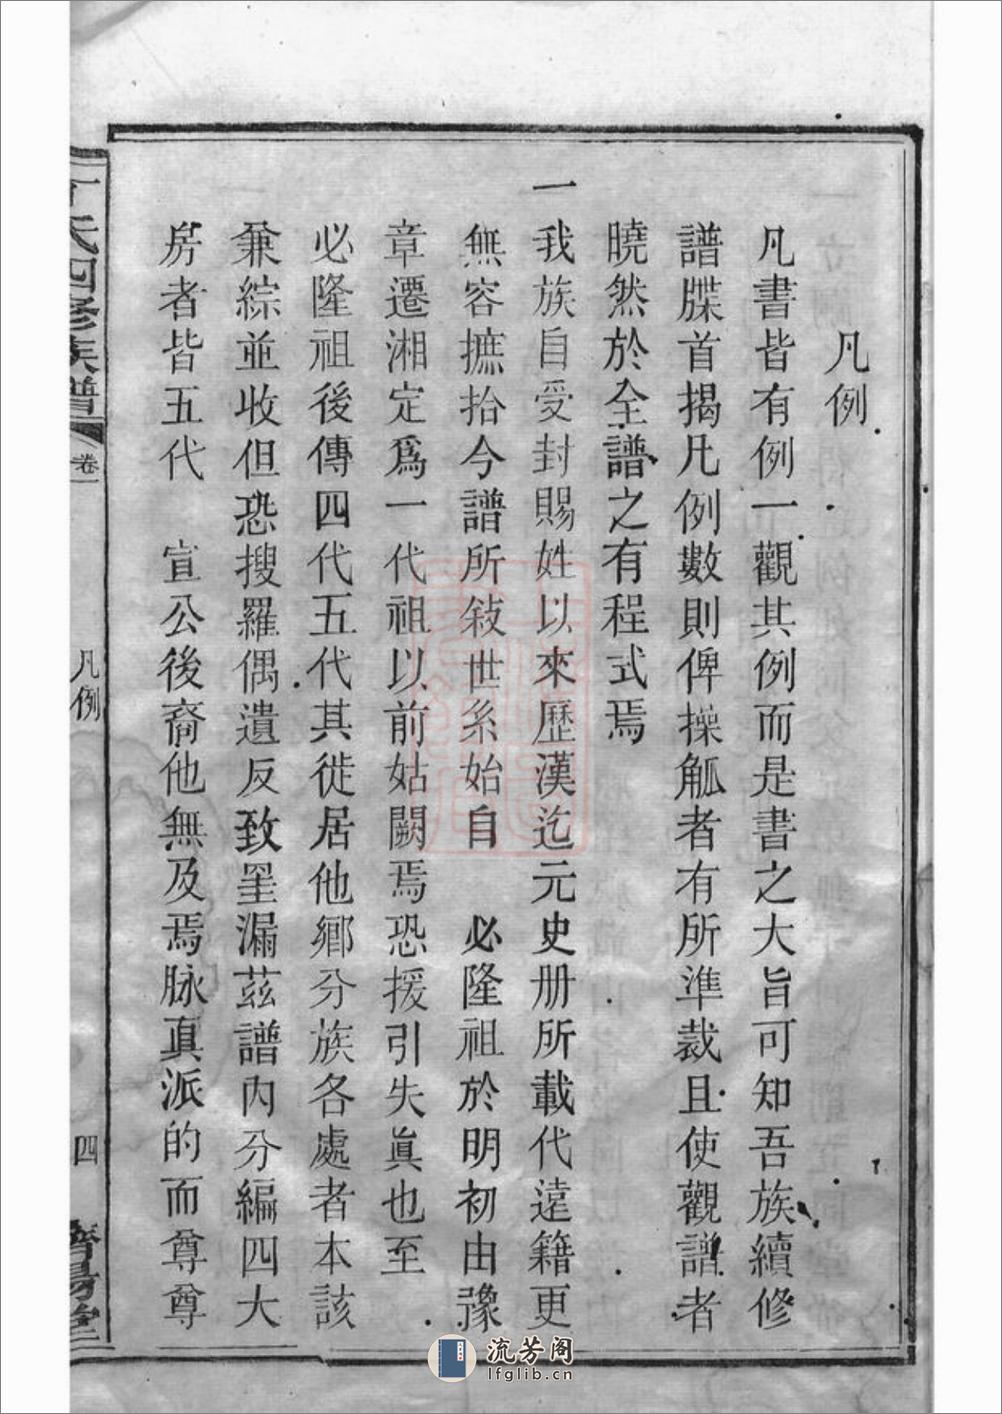 凡例
凡書皆有例一觀其例而是書之大旨可知吾族續修
譜牒首揭凡例數則俾操觚者有所準裁且使觀譜者
曉然於全譜之有程式焉
一我族自受封賜姓以來歷漢迄元史册所載代遠籍更
無容摭拾今譜所敍世系始自　必隆祖於明初由豫
章遷湘定爲一代祖以前姑闕焉恐援引失眞也至
必隆祖後傳四代五代其徙居他鄉分族各處者本該
兼綜並收但恐搜羅偶遺反致罣漏茲譜內分編四大
房者皆五代　宣公後裔他無及焉脉真派的而尊尊
丁氏四修族譜
卷一
凡例
四
濟陽堂
流芳阁
lfglib.cn